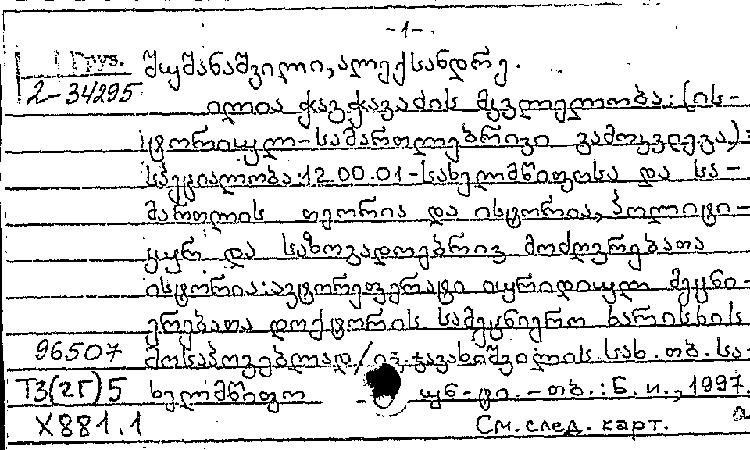 -1-
Груз. შუშანაშვილი, ალექსანდრე.
2-34295 ილია ჭავჭავაძის მკვლელობა: (ის-
ტორიულ-სამართლებრივი გამოკვლევა):
სპეციალობა: 12.00.01-სახელმწიფოსა და სა-
მართლის თეორია და ისტორია, პოლიტი-
კურ და საზოგადოებრივ მოძღვრებათა
ისტორია: ავტორეფერატი იურიდიულ მეცნი-
ერებათა დოქტორის სამეცნიერო ხარისხის
96507 მოსაპოვებლად/ივ. ჯავახიშვილის სახ. თბ. სა-
ТЗ(2Г)5 ხელმწიფო უნ-ტი. - თბ.: Б. и., 1997.
X881.1 См. след. карт.